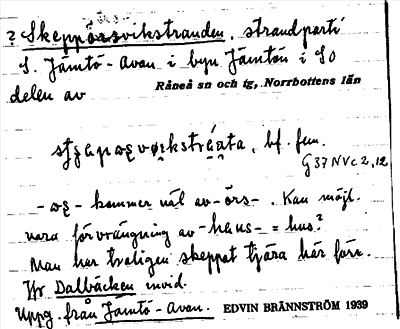 ? Skeppörsvikstranden, strandparti
S. Jämtö-Avan i byn Jämtön i SO
delen av Råneå sn och tg, Norrbottens län
bf. fem.
G 37 NV c 2, 12
- kommer väl av -örs-. Kan möjl.
vara förvrängning av -hus- = hus?
Man har troligen skeppat tjära här förr.
Jfr Dalbäcken invid.
Uppg. från Jämtö-Avan. EDVIN BRÄNNSTRÖM 1939